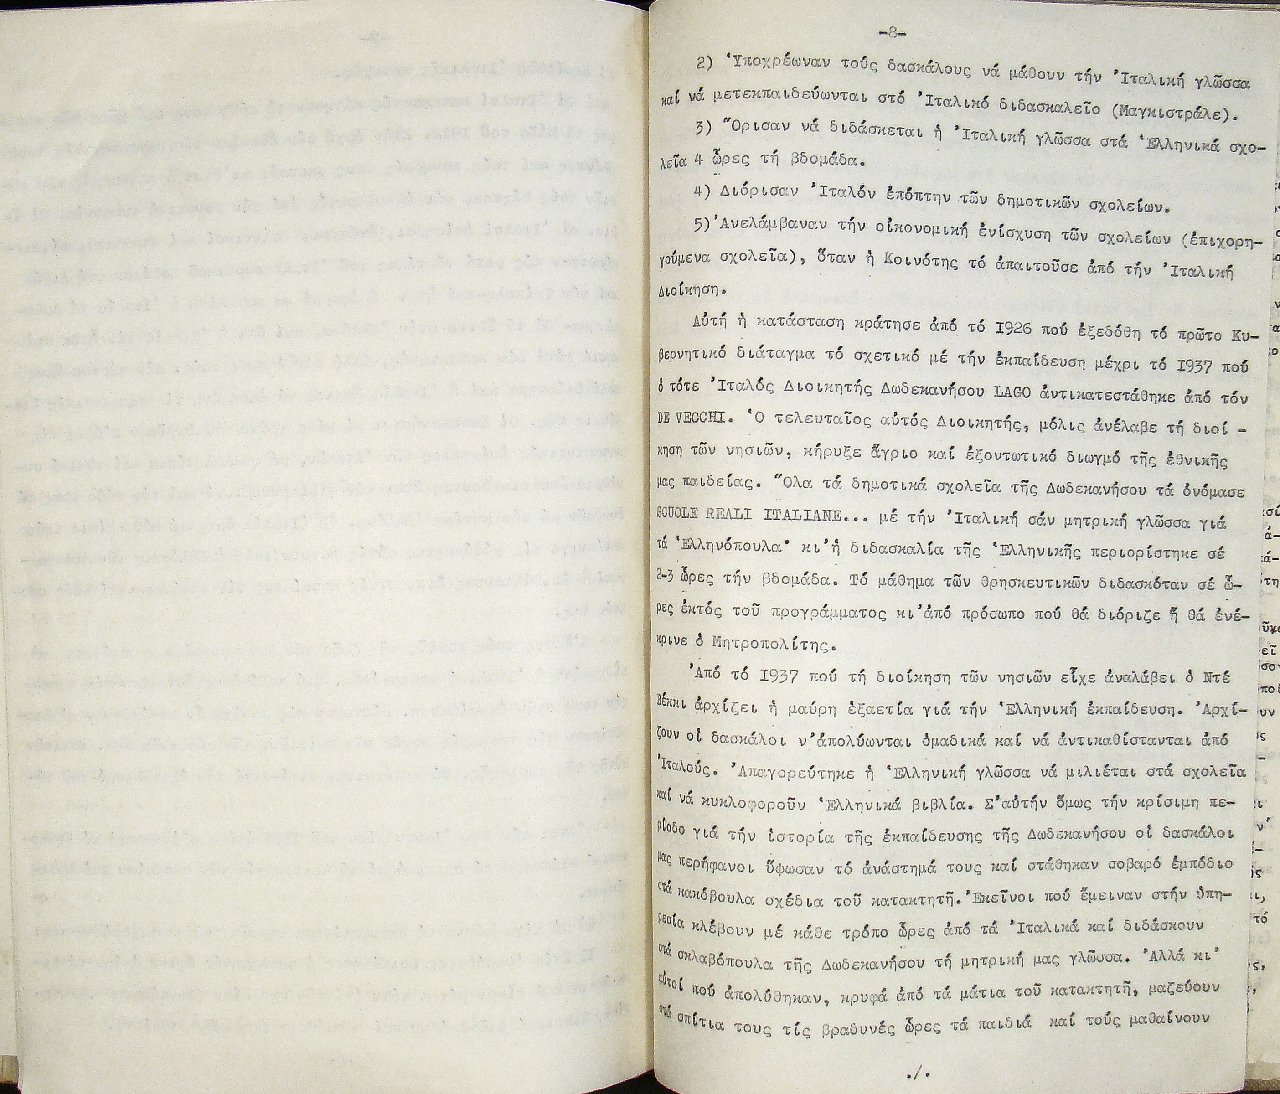 -8-
2) Ὑποχρέωναν τούς δασκάλους νά μάθουν τήν Ἰταλική γλῶσσα
καί νά μετεκπαιδεύωνται στό Ἰταλικό διδασκαλεῖο (Μαγκιστράλε).
3) Ὅρισαν νά διδάσκεται ἡ Ἰταλική γλῶσσα στά Ἑλληνικά σχο-
λεῖα 4 ὧρες τή βδομάδα.
4) Διόρισαν Ἰταλόν ἐπόπτην τῶν δημοτικῶν σχολείων.
5) Ἀνελάμβαναν τήν οἰκονομική ἐνίσχυση τῶν σχολείων (ἐπιχορη-
γούμενα σχολεῖα), ὅταν ἡ Κοινότης τό ἀπαιτοῦσε ἀπό τήν Ἰταλική
Διοίκηση.
Αὐτή ἡ κατάσταση κράτησε ἀπό τό 1926 πού ἐξεδόθη τό πρῶτο Κυ-
βερνητικό διάταγμα τό σχετικό μέ τήν ἐκπαίδευση μέχρι τό 1937 πού
ὁ τότε Ἰταλός Διοικητής Δωδεκανήσου LAGO ἀντικατεστάθηκε ἀπό τόν
DE VECCHI. Ὁ τελευταῖος αὐτός Διοικητής, μόλις ἀνέλαβε τή διοί -
κηση τῶν νησιῶν, κήρυξε ἄγριο καί ἐξοντωτικό διωγμό τῆς ἐθνικῆς
μας παιδείας. Ὅλα τά δημοτικά σχολεῖα τῆς Δωδεκανήσου τά ὀνόμασε
SCUOLE REALI ITALIANE... μέ τήν Ἰταλική σάν μητρική γλῶσσα γιά
τά Ἑλληνόπουλα· κι'ἡ διδασκαλία τῆς Ἑλληνικῆς περιορίστηκε σέ
2-3 ὧρες τήν βδομάδα. Τό μάθημα τῶν θρησκευτικῶν διδασκόταν σέ ὧ-
ρες ἐκτός τοῦ προγράμματος κι'ἀπό πρόσωπο πού θά διόριζε ἤ θά ἐνέ-
κρινε ὁ Μητροπολίτης.
Ἀπό τό 1937 πού τή διοίκηση τῶν νησιῶν εἶχε ἀναλάβει ὁ Ντέ
Βέκκι ἀρχίζει ἡ μαύρη ἑξαετία γιά τήν Ἑλληνική ἐκπαίδευση. Ἀρχί-
ζουν οἱ δασκάλοι ν'ἀπολύωνται ὁμαδικά καί νά ἀντικαθίστανται ἀπό
Ἰταλούς. Ἀπαγορεύτηκε ἡ Ἑλληνική γλῶσσα νά μιλιέται στά σχολεῖα
καί νά κυκλοφοροῦν Ἑλληνικά βιβλία. Σ'αὐτήν ὅμως τήν κρίσιμη πε-
ρίοδο γιά τήν ἱστορία τῆς ἐκπαίδευσης τῆς Δωδεκανήσου οἱ δασκάλοι
μας περήφανοι ὕψωσαν τό ἀνάστημά τους καί στάθηκαν σοβαρό ἐμπόδιο
στά κακόβουλα σχέδια τοῦ κατακτητῆ. Ἐκεῖνοι πού ἔμειναν στήν ὑπη-
ρεσία κλέβουν μέ κάθε τρόπο ὧρες ἀπό τά Ἰταλικά καί διδάσκουν
στά σκλαβόπουλα τῆς Δωδεκανήσου τή μητρική μας γλῶσσα. Ἀλλά κι'
αὐτοί πού ἀπολύθηκαν, κρυφά ἀπό τά μάτια τοῦ κατακτητῆ, μαζεύουν
στά σπίτια τους τίς βραδυνές ὧρες τά παιδιά καί τούς μαθαίνουν
./.